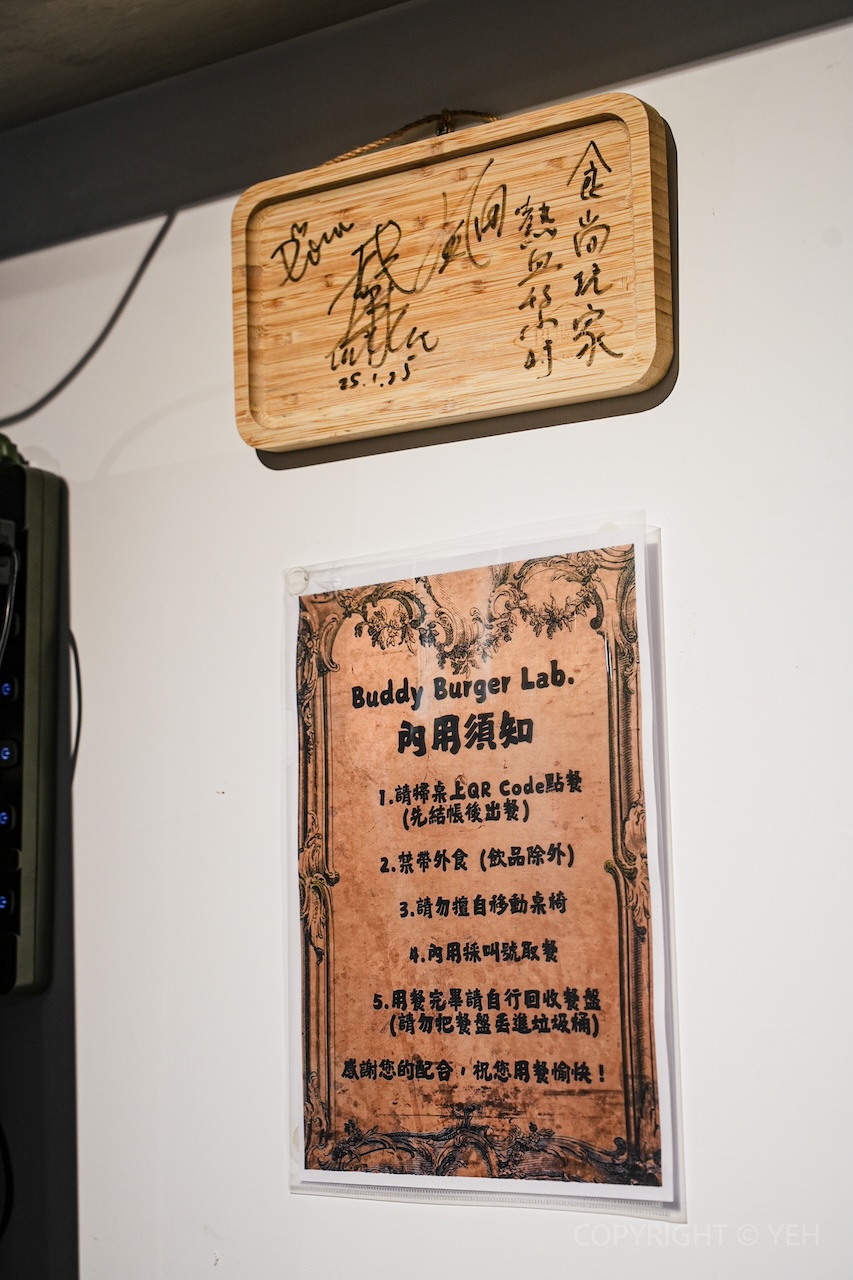 食尚玩家
熱血48小時
Dora
25.1.25
Buddy Burger Lab.
內用須知
1.請掃桌上QR Code點餐
(先結帳後出餐)
2.禁帶外食 (飲品除外)
3.請勿擅自移動桌椅
4.內用採叫號取餐
5.用餐完畢請自行回收餐盤
(請勿把餐盤丟進垃圾桶)
感謝您的配合，祝您用餐愉快！
COPYRIGHT © YEH